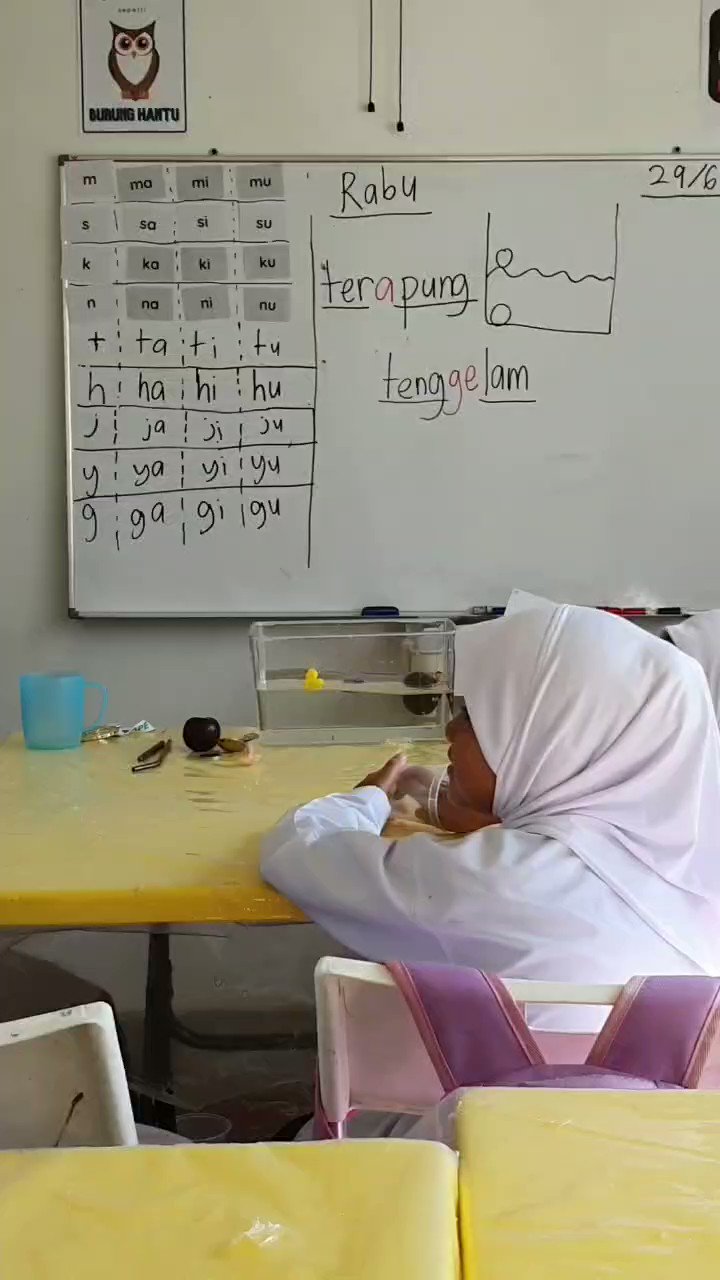 BURUNG HANTU
m ma mi mu
s sa si su
k ka ki ku
n na ni nu
t ta ti tu
h ha hi hu
j ja ji ju
y ya yi yu
g ga gi gu
Rabu
29/6
terapung
tenggelam